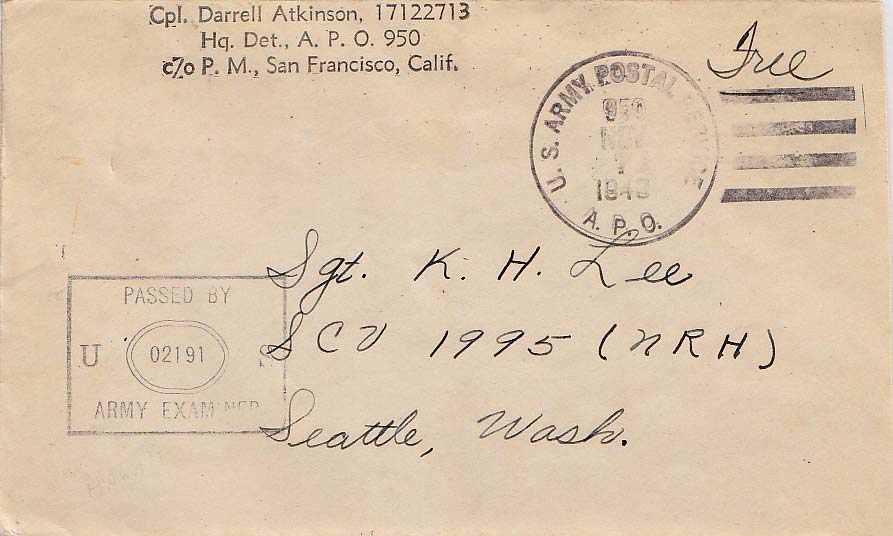 Cpl. Darrell Atkinson, 17122713
Hq. Det., A. P. O. 950
c/o P. M., San Francisco, Calif.
Free
U. S. ARMY POSTAL SERVICE
950
NOV
7
1943
A. P. O.
Sgt. K. H. Lee
SCU 1995 (NRH)
Seattle, Wash.
PASSED BY
U 02191 S
ARMY EXAMINER